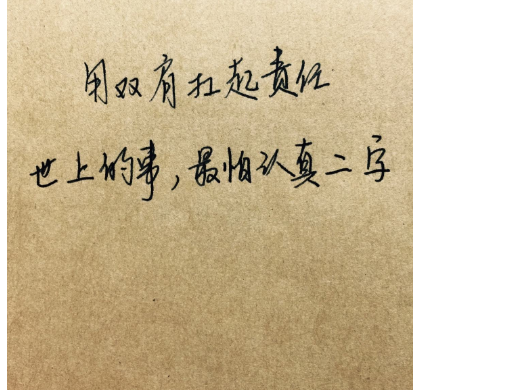 用双肩扛起责任
世上的事,最怕认真二字